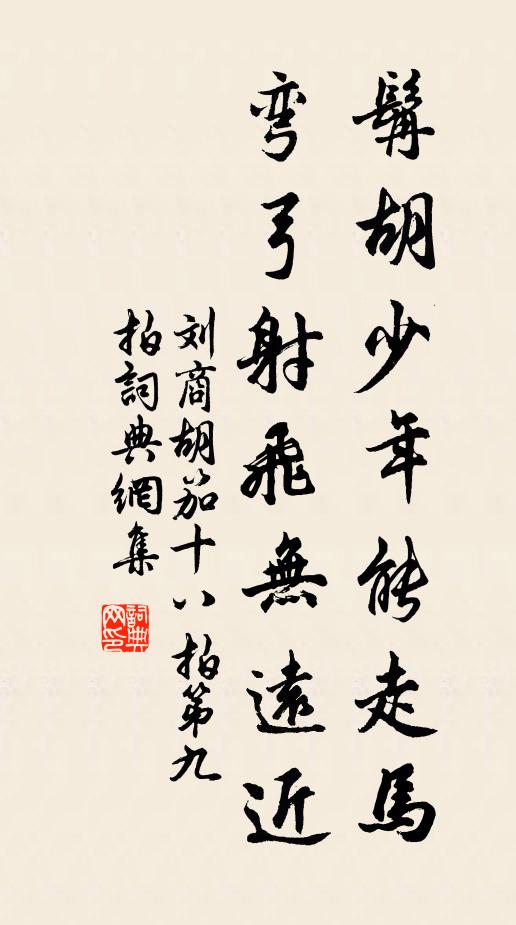 髯胡少年能走馬
弯弓射飛無遠近
刘商胡笳十八拍第九
拍詞典網集
詞典
网印